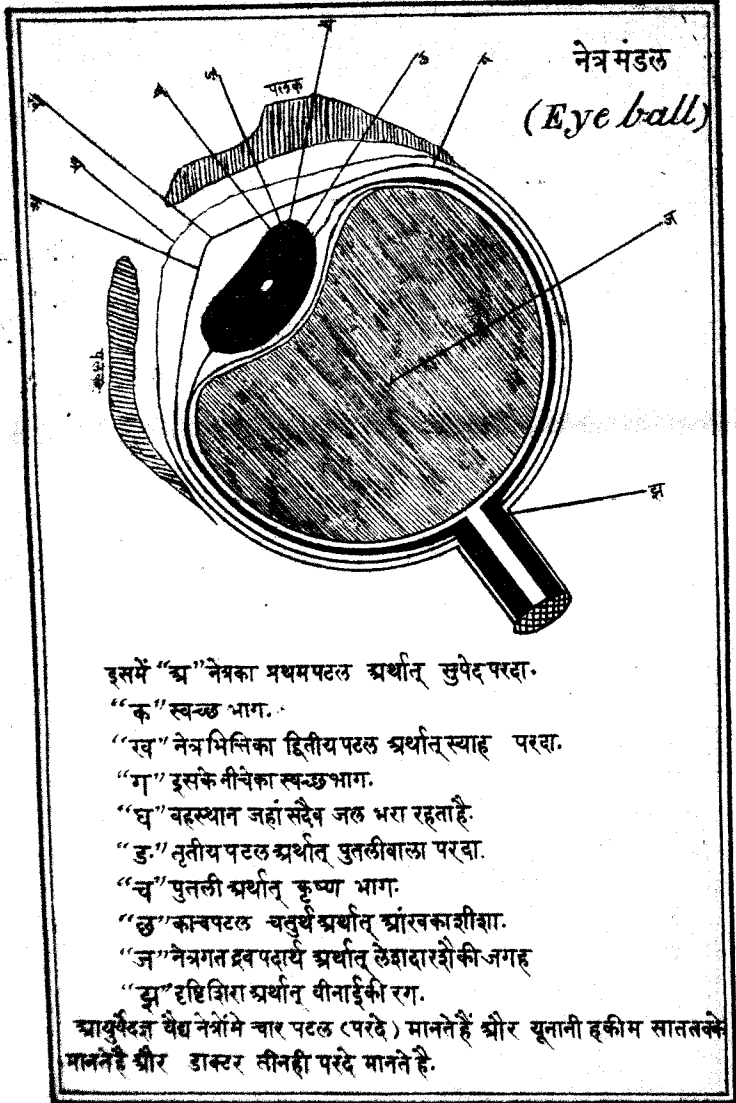 नेत्र मंडल
(Eye ball)
पलक
ज
पलक
झ
इसमें “अ” नेत्रका प्रथमपटल अर्थात् सुपेद परदा.
“क” स्वच्छ भाग.
“ख” नेत्रभित्तिका द्वितीयपटल अर्थात् स्याह परदा.
“ग” इसके नीचेका स्वच्छभाग.
“घ” वहस्थान जहां सदैव जल भरा रहताहै.
“ङ” तृतीयपटल अर्थात् पुतलीवाला परदा.
“च” पुतली अर्थात् कृष्ण भाग.
“छ” काचपटल चतुर्थ अर्थात् आंखकाशीशा.
“ज” नेत्रगत द्रव पदार्थ अर्थात् लेशदारशैकी जगह
“झ” दृष्टिशिरा अर्थात् वीनाईकी रग.
आयुर्वेदज्ञ वैद्य नेत्रोंमे चार पटल (परदे) मानतेहैं और यूनानी हकीम साततबके
मानतेहै और डाक्टर तीनही परदे मानते है.